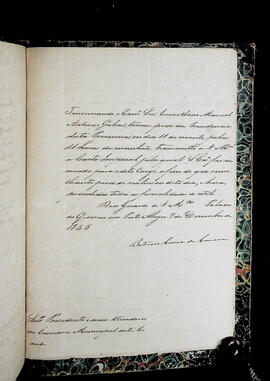 Tencionando o Exmo Snr Conselheiro Manoel
Antonio Galvão tomar posse da Presidencia
desta Provincia no dia 11 do corrente, pelas
11 horas da manhãa, transmitto a V. Mces
a Carta Imperial pela qual S. Exa foi no-
meado para o dito Cargo, afim de que
posse se realise no dito dia, e hora,
as formalidades do estilo.
Deos Guarde a V. Mces Palacio
do Governo em Porto Alegre 9 de Dezembro de
1846
Patricio Correa da Camara
Snrs Presidente e mais Vereadores
da Camara Municipal desta Ci-
dade